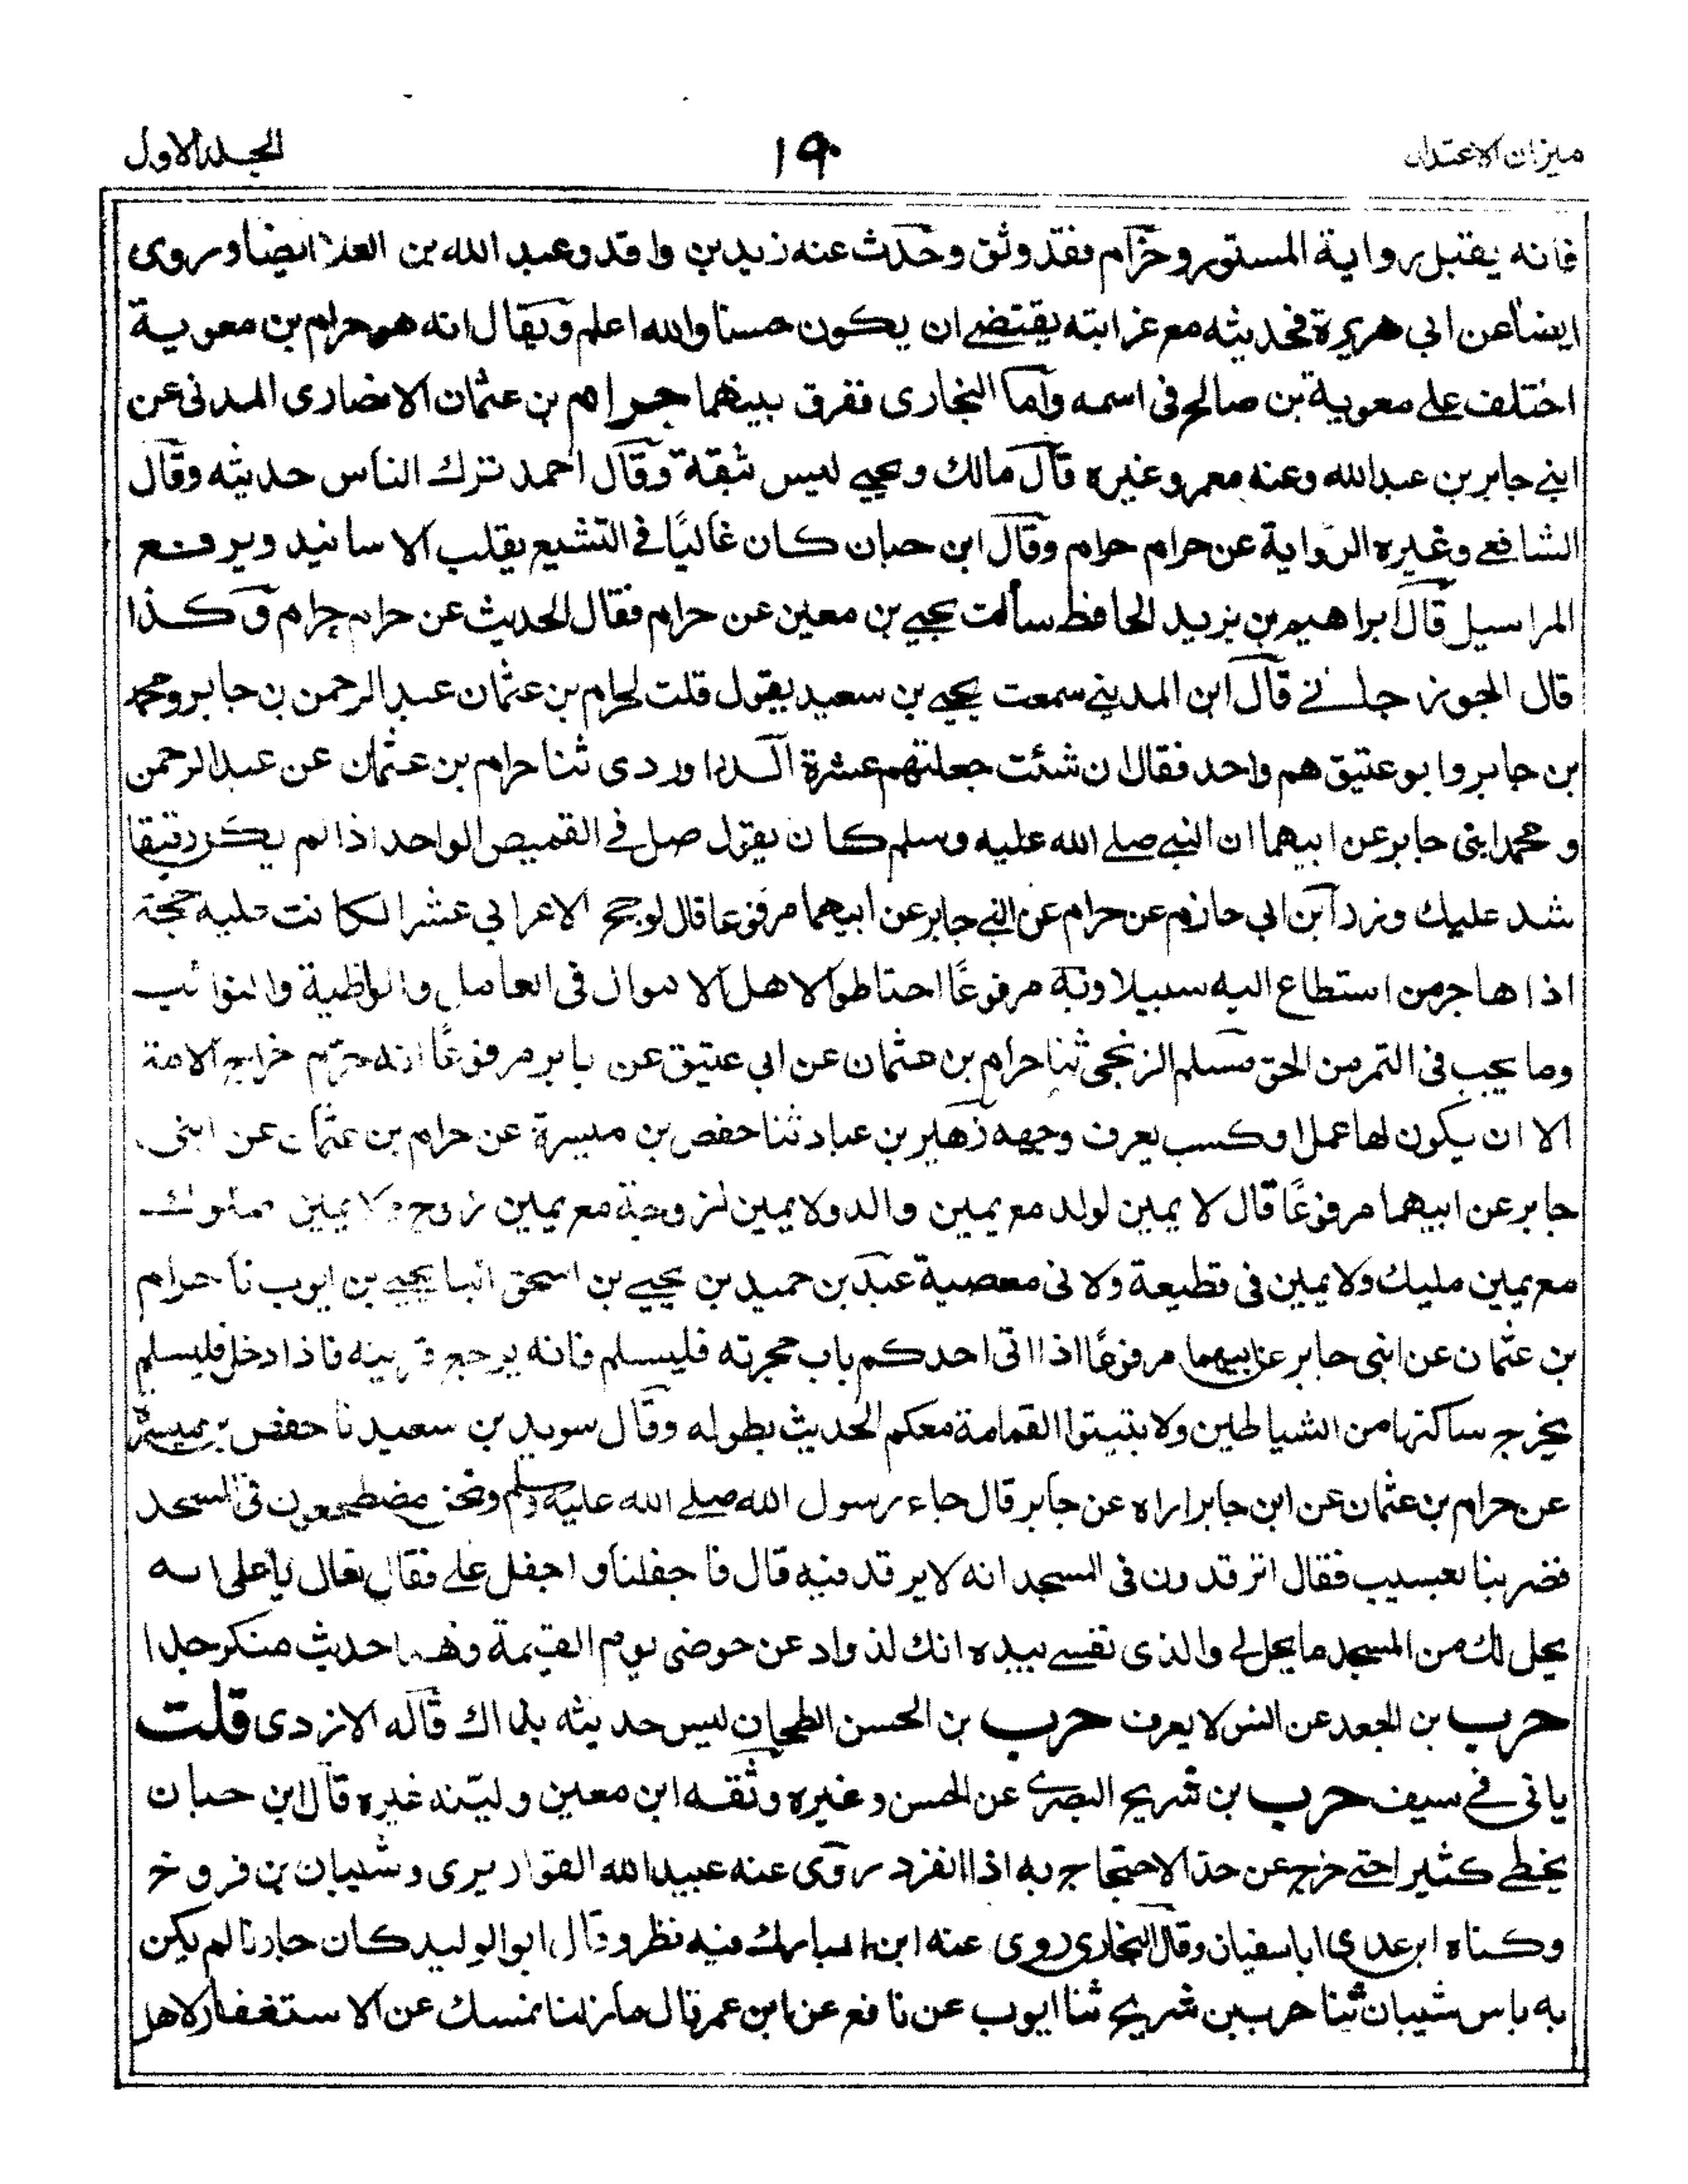 ميزان الاعتدال ١٩٠ الجلد الاول
فانه يقبل رواية المستور وحرام فقد وثق وحدث عنه زيد بن واقد وعبد الله بن العلا ايضا وروى
ايضا عن ابي هريرة فحديثه مع غرابته يقتضي ان يكون حسنا والله اعلم ويقال انه هو حرام بن معوية
اختلف علے معوية بن صالح فى اسمه واما البخارى ففرق بينهما حرام بن عثمان الانصارى المدنى عن
ابنے جابر بن عبد الله وعنه معمر وغيره قال مالك ويحيے ليس بثقة وقال احمد ترك الناس حديثه وقال
الشافعے وغيره الرواية عن حرام حرام وقال ابن حبان كان غاليًا فے التشيع يقلب الاسانيد ويرفع
المراسيل قال ابراهيم بن يزيد الحافظ سألت يحيے بن معين عن حرام فقال الحديث عن حرام حرام وكذا
قال الجوزجانے قال ابن المدينے سمعت يحيے بن سعيد يقول قلت لحرام بن عثمان عبد الرحمن بن جابر ومحمد
بن جابر وابو عتيق هم واحد فقال ان شئت جعلتهم عشرة الدراوردى ثنا حرام بن عثمان عن عبد الرحمن
ومحمد ابنى جابر عن ابيهما ان النبے صلے الله عليه وسلم كان يقول صل فے القميص الواحد اذا لم يكن رقيقا
شد عليك وزر ابن ابي حازم عن حرام عن ابنے جابر عن ابيهما مرفوعا قال لو حج الاعرابي عشرا لكانت عليه حجة
اذا هاجر من استطاع اليه سبيلا وبه مرفوعًا احتاطوا لاهل الاموال فى العامل والواطية والنوائب
وما يجب فى التمر من الحق مسلم الزنجى ثنا حرام بن عثمان عن ابى عتيق عن جابر مرفوعًا انه حرم خراج الامة
الا ان يكون لها عمل او كسب يعرف وجهه زهير بن عباد ثنا حفص بن ميسرة عن حرام بن عثمان عن ابنى
جابر عن ابيهما مرفوعًا قال لا يمين لولد مع يمين والد ولا يمين لزوجة مع يمين زوج ولا يمين مملوك
مع يمين مليك ولا يمين فى قطيعة ولا فى معصية عبد بن حميد بن يحيے بن اسحق انبا يحيے بن ايوب نا حرام
بن عثمان عن ابنى جابر عن ابيهما مرفوعًا اذا اتى احدكم باب حجرته فليسلم فانه يرجع قرينه فاذا دخل فليسلم
يخرج ساكنها من الشياطين ولا تبيتوا القمامة معكم الحديث بطوله وقال سويد بن سعيد نا حفص بن ميسرة
عن حرام بن عثمان عن ابن جابر اراه عن جابر قال جاء رسول الله صلے الله عليه وسلم ونحن مضطجعون فى المسجد
فضربنا بعسيب فقال اترقدون فى المسجد انه لا يرقد فيه قال فاجفلنا واجفل علے فقال تعال يا على انه
يحل لك من المسجد ما يحل لے والذى نفسے بيده انك لذواد عن حوضى يوم القيمة وهذا حديث منكر جدا
حرب بن الجعد عن انس لا يعرف حرب بن الحسن الطحان ليس حديثه بذاك قاله الازدى قلت
ياتى فے سيف حرب بن شريح البصرے عن الحسن وغيره وثقه ابن معين ولينه غيره قال ابن حبان
يخطے كثيرا حتے خرج عن حد الاحتجاج به اذا انفرد روى عنه عبيد الله القواريرى وشيبان بن فروخ
وكناه ابن عدي ابا سفيان وقال البخارى روى عنه ابن المبارك فيه نظر وقال ابو الوليد كان جارنا لم يكن
به باس شيبان ثنا حرب بن شريح ثنا ايوب عن نافع عن ابن عمر قال ما زلنا نمسك عن الاستغفار لاهل